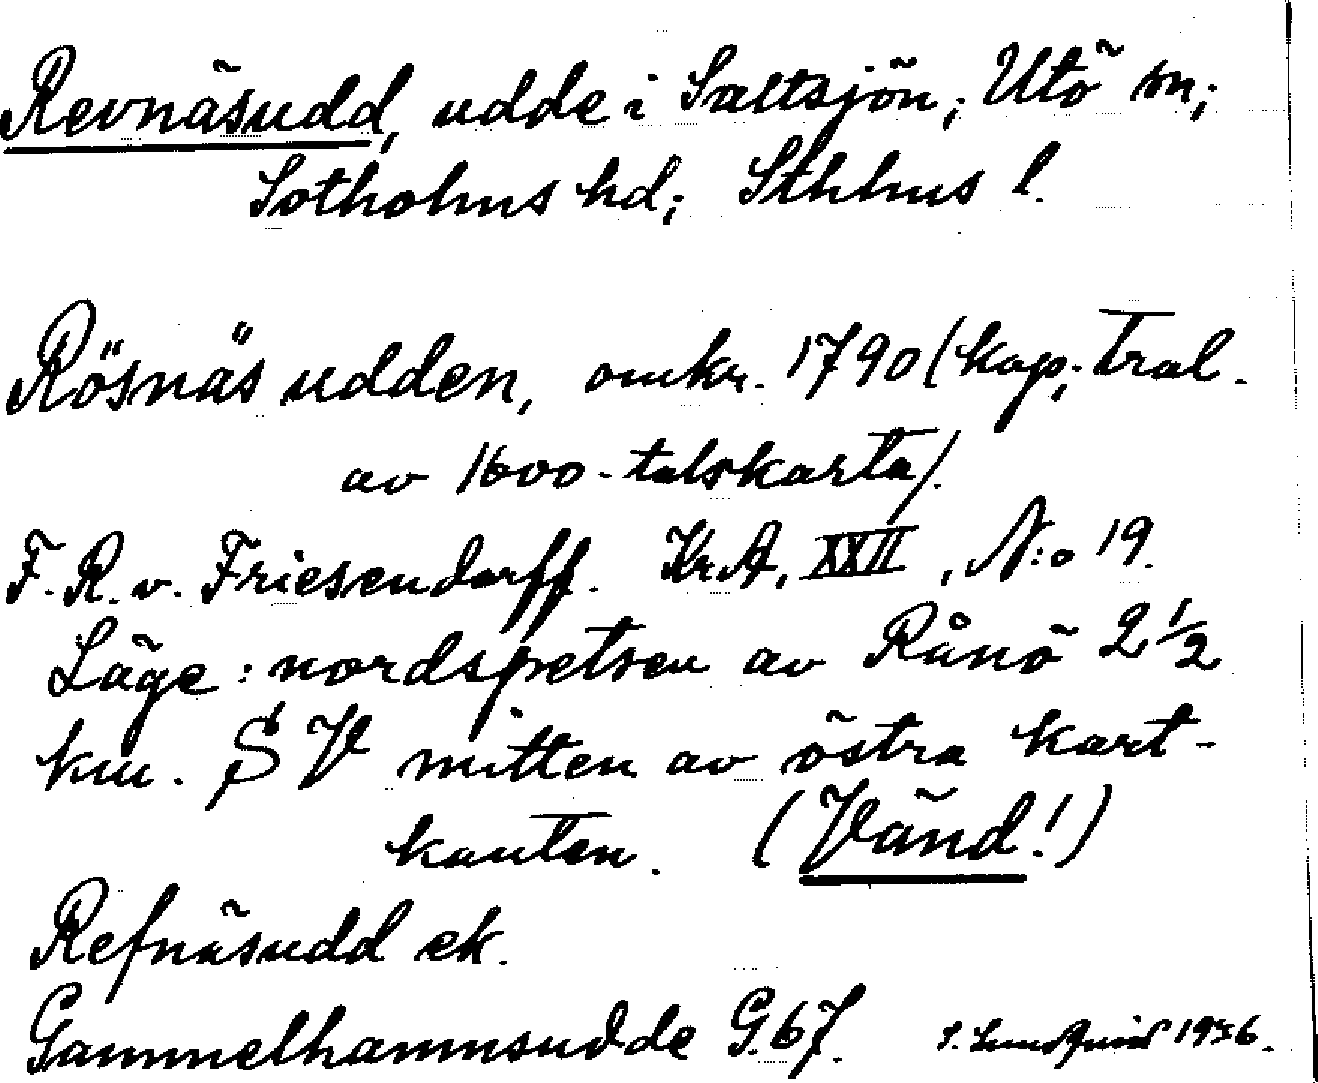 Revnäsudd, udde i Saltsjön; Utö sn;
Sotholms hd; Sthlms l.
Rösnäs udden, omkr. 1790 (kop; tral.
av 1600-talskarta).
F. R. v. Friesendorff. Kr.A, XXII, N:o 19.
Läge: nordspetsen av Rånö 2 1/2
km. SV mitten av östra kart-
kanten. (Vänd!)
Refnäsudd ek.
Gammelhamnsudde G.67. S. Lundquist 1936.